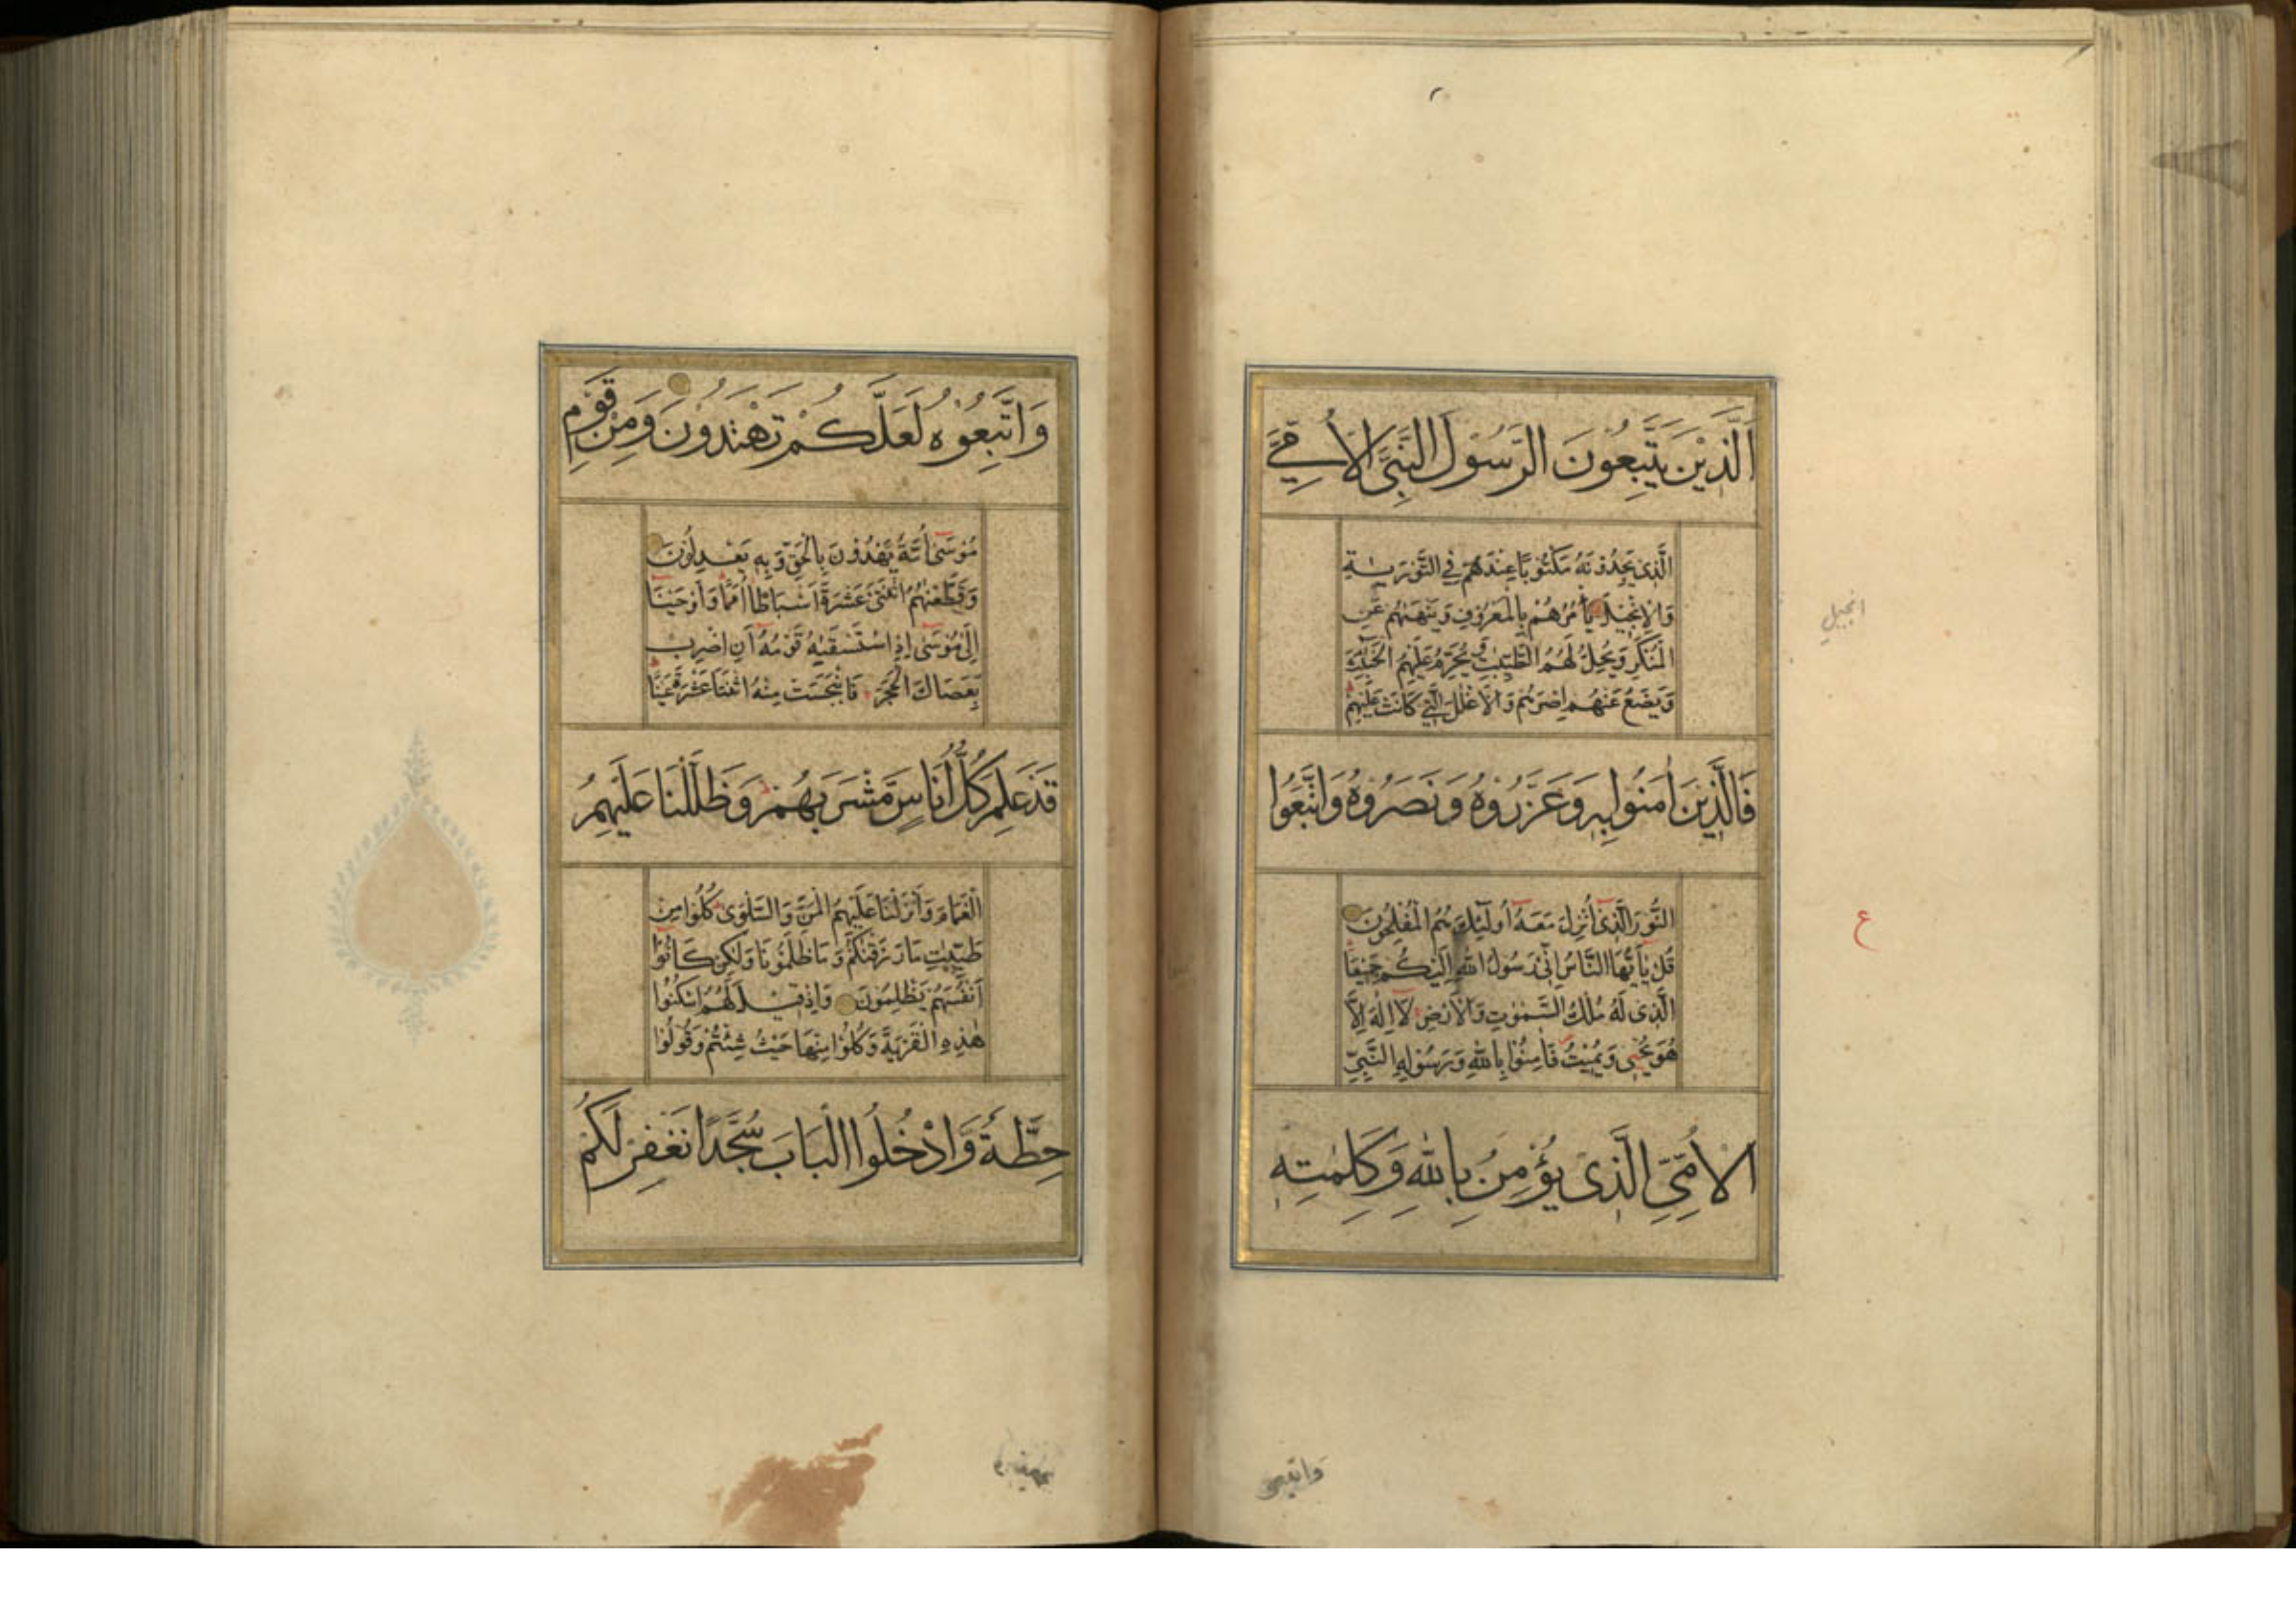 اَلَّذِيْنَ يَتَّبِعُونَ الرَّسُوْلَ النَّبِىَّ الْاُمِّىَّ
الَّذِىْ يَجِدُوْنَهُ مَكْتُوْبًا عِنْدَهُمْ فِى التَّوْرٰىةِ
وَالْاِنْجِيْلِ يَأْمُرُهُمْ بِالْمَعْرُوْفِ وَيَنْهٰىهُمْ عَنِ
الْمُنْكَرِ وَيُحِلُّ لَهُمُ الطَّيِّبٰتِ وَيُحَرِّمُ عَلَيْهِمُ الْخَبٰٓئِثَ
وَيَضَعُ عَنْهُمْ اِصْرَهُمْ وَالْاَغْلٰلَ الَّتِىْ كَانَتْ عَلَيْهِمْ
فَالَّذِيْنَ اٰمَنُوْا بِهٖ وَعَزَّرُوْهُ وَنَصَرُوْهُ وَاتَّبَعُوا
النُّوْرَ الَّذِىْ اُنْزِلَ مَعَهٗ اُولٰٓئِكَ هُمُ الْمُفْلِحُوْنَ
قُلْ يٰٓاَيُّهَا النَّاسُ اِنِّىْ رَسُوْلُ اللّٰهِ اِلَيْكُمْ جَمِيْعًا
الَّذِىْ لَهٗ مُلْكُ السَّمٰوٰتِ وَالْاَرْضِ لَآ اِلٰهَ اِلَّا
هُوَ يُحْيٖ وَيُمِيْتُ فَاٰمِنُوْا بِاللّٰهِ وَرَسُوْلِهِ النَّبِىِّ
الْاُمِّىِّ الَّذِىْ يُؤْمِنُ بِاللّٰهِ وَكَلِمٰتِهٖ
انجيل
ع
واتبعوه
وَاتَّبِعُوْهُ لَعَلَّكُمْ تَهْتَدُوْنَ وَمِنْ قَوْمِ
مُوْسٰىٓ اُمَّةٌ يَّهْدُوْنَ بِالْحَقِّ وَبِهٖ يَعْدِلُوْنَ
وَقَطَّعْنٰهُمُ اثْنَتَىْ عَشْرَةَ اَسْبَاطًا اُمَمًا وَاَوْحَيْنَآ
اِلٰى مُوْسٰىٓ اِذِ اسْتَسْقٰىهُ قَوْمُهٗٓ اَنِ اضْرِبْ
بِّعَصَاكَ الْحَجَرَ فَانْۢبَجَسَتْ مِنْهُ اثْنَتَا عَشْرَةَ عَيْنًا
قَدْ عَلِمَ كُلُّ اُنَاسٍ مَّشْرَبَهُمْ وَظَلَّلْنَا عَلَيْهِمُ
الْغَمَامَ وَاَنْزَلْنَا عَلَيْهِمُ الْمَنَّ وَالسَّلْوٰى كُلُوْا مِنْ
طَيِّبٰتِ مَا رَزَقْنٰكُمْ وَمَا ظَلَمُوْنَا وَلٰكِنْ كَانُوْٓا
اَنْفُسَهُمْ يَظْلِمُوْنَ وَاِذْ قِيْلَ لَهُمُ اسْكُنُوْا
هٰذِهِ الْقَرْيَةَ وَكُلُوْا مِنْهَا حَيْثُ شِئْتُمْ وَقُوْلُوْا
حِطَّةٌ وَّادْخُلُوا الْبَابَ سُجَّدًا نَغْفِرْ لَكُمْ